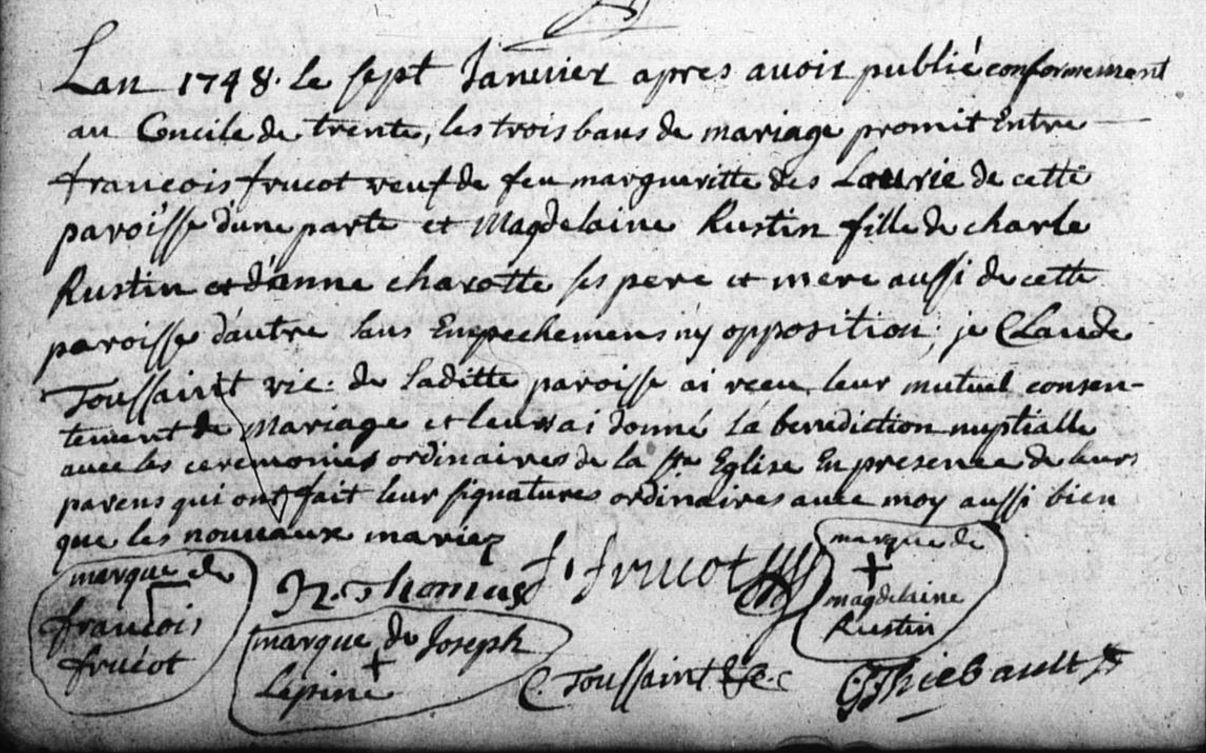 Lan 1748. le sept Januier apres auoir publié conformement
au Concile de trente, les trois bans de mariage promit Entre
francois frucot veuf de feu margueritte des Lourie de cette
paroisse d'une parte et Magdelaine Rustin fille de charle
Rustin et d'anne charotte ses pere et mere aussi de cette
paroisse d'autre sans Empechemens ny opposition; je Claude
Toussaint vic: de laditte paroisse ai receu leur mutuel consen-
tement de Mariage et leur ai donné la benediction nuptialle
auec les ceremonies ordinaires de la ste Eglise En presence de leurs
parens qui ont fait leur signatures ordinaires auec moy aussi bien
que les nouueaux mariez
marque de
francois
frucot
N. Thomas
f. frucot
marque de
+
magdelaine
Rustin
marque de Joseph
+
Lepine
C. Toussaint
C. Thiebault